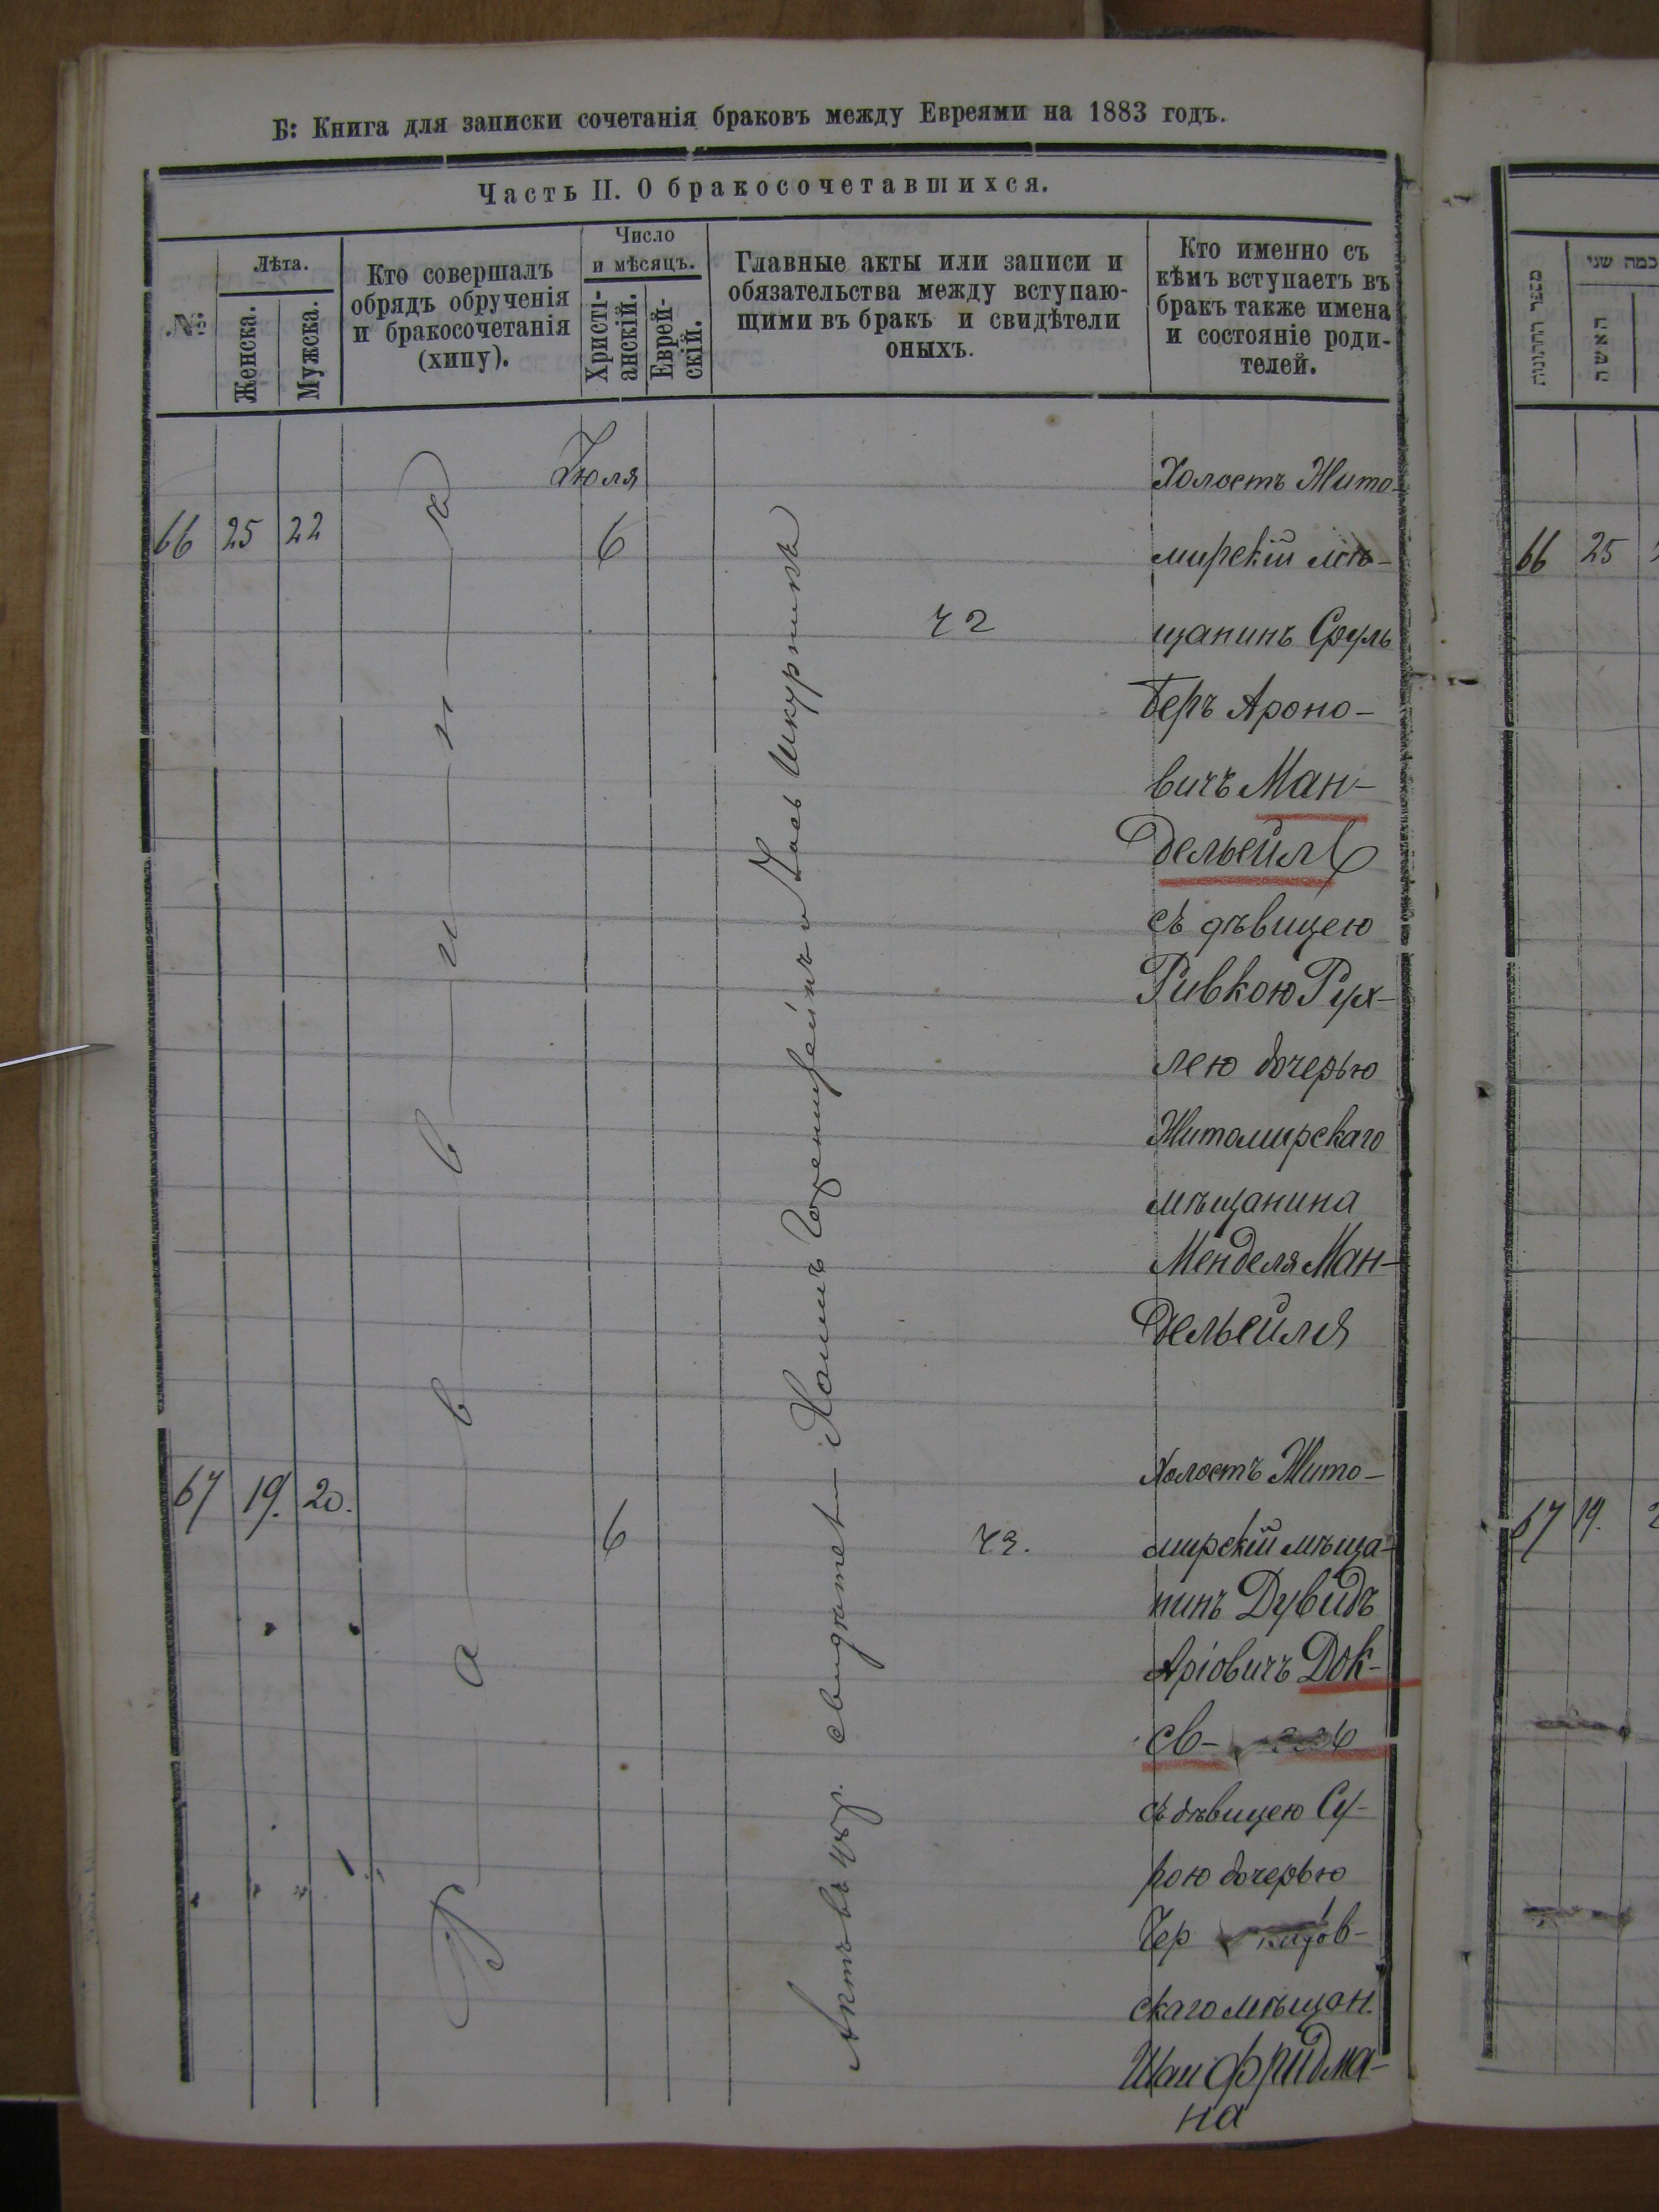 Б: Книга для записки сочетанія браковъ между Евреями на 1883 годъ.
Часть II. О бракосочетавшихся.
№
Лѣта.
Женска.
Мужска.
Кто совершалъ
обрядъ обрученія
и бракосочетанія
(хипу).
Число
и мѣсяцъ.
Христі-
анскій.
Еврей-
скій.
Главные акты или записи и
обязательства между вступаю-
щими въ бракъ и свидѣтели
оныхъ.
Кто именно съ
кѣмъ вступаетъ въ
бракъ также имена
и состояніе роди-
телей.
Раввинъ
Актъ въ свидѣтел Хаимъ и Шкурникъ
Іюля
66 25 22 6 72
Холостъ Жито-
мирскій мѣ-
щанинъ Сруль
Беръ Ароно-
вичъ Ман-
дельейль
съ дѣвицею
Ривкою Рух-
лею дочерью
Житомирскаго
мѣщанина
Менделя Ман-
дельейля
67 19. 20. 6 73.
Холостъ Жито-
мирскій мѣща-
нинъ Дувидъ
Аріовичъ Док-
съ дѣвицею Су-
рою дочерью
Чер
скаго мѣщан.
Шаи Фридма-
на
מספר החתונות
כמה שני
האשה
66 25
67 19.